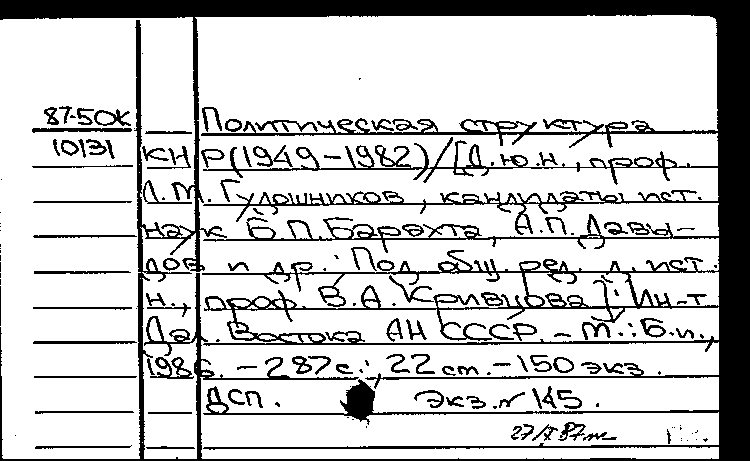 87-5ОК
10131
Политическая структура
КНР (1949-1982) / [Д.ю.н., проф.
Л.М. Гудошников, кандидаты ист.
наук Б.П. Барахта, А.П. Давы-
дов и др.; Под общ. ред. д. ист.
н., проф. В.А. Кривцова]; Ин-т
Дал. Востока АН СССР. - М.: Б.и.,
1986. - 287 с.; 22 см. - 150 экз.
ДСП. Экз. № 145.